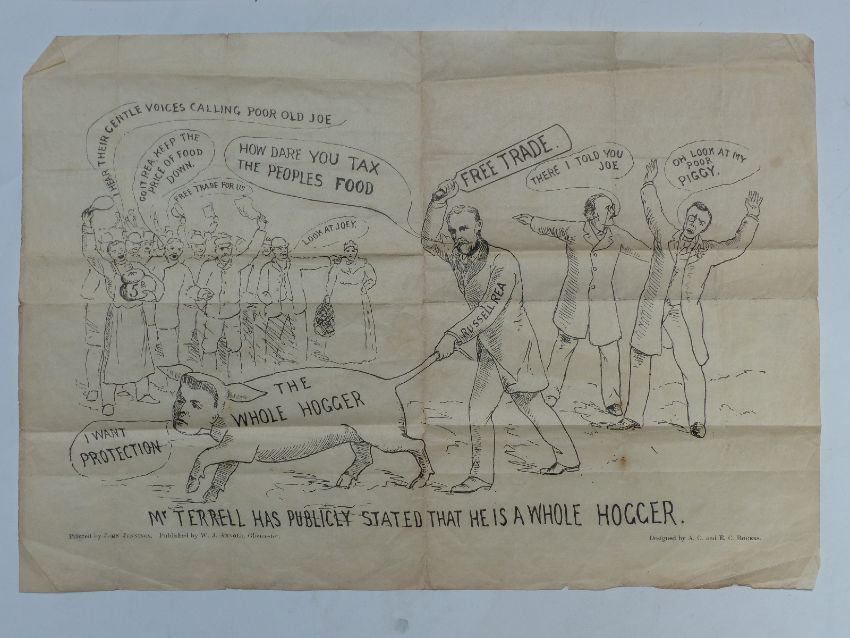 I HEAR THEIR GENTLE VOICES CALLING POOR OLD JOE
GO IT REA KEEP THE
PRICE OF FOOD
DOWN.
FREE TRADE FOR US
HOW DARE YOU TAX
THE PEOPLES FOOD
LOOK AT JOEY.
FREE TRADE.
THERE I TOLD YOU
JOE
OH LOOK AT MY
POOR
PIGGY.
RUSSELL REA
THE
WHOLE HOGGER
I WANT
PROTECTION
Mr TERRELL HAS PUBLICLY STATED THAT HE IS A WHOLE HOGGER.
Printed by JOHN JENNINGS. Published by W. J. ARNOLD, Gloucester.
Designed by A. C. and E. C.